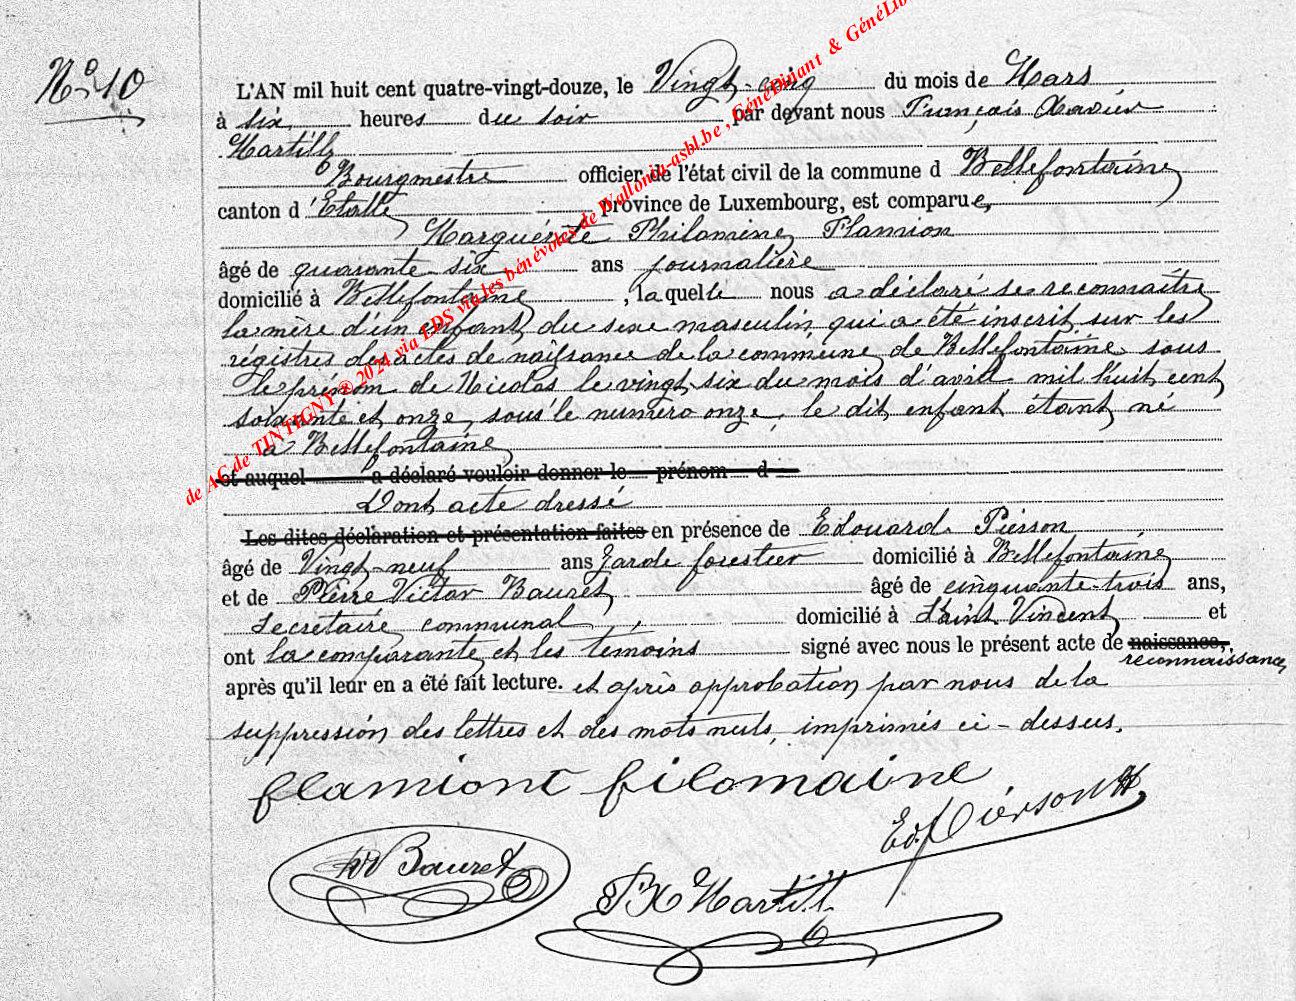 N° 10
L'AN mil huit cent quatre-vingt-douze, le Vingt-cinq du mois de Mars
à six heures du soir par devant nous François Xavier
Martilly
Bourgmestre officier de l'état civil de la commune d Bellefontaine
canton d'Etalle province de Luxembourg, est comparue,
Marguérite Philomine Flamion
âgé de quarante-six ans journalière
domicilié à Bellefontaine, laquelle nous a déclaré se reconnaître
la mère d'un enfant du sexe masculin qui a été inscrit sur les
régistres des actes de naissance de la commune de Bellefontaine sous
le prénom de Nicolas le vingt-six du mois d'avril mil huit cent
soixante et onze, sous le numéro onze, le dit enfant étant né
à Bellefontaine
et auquel a déclaré vouloir donner le prénom d
Dont acte dressé
Les dites déclaration et présentation faites en présence de Edouard Pierson
âgé de Vingt-neuf ans garde forestier domicilié à Bellefontaine
et de Pierre Victor Bauret âgé de cinquante-trois ans,
Secrétaire communal, domicilié à Saint Vincent et
ont la comparante et les témoins signé avec nous le présent acte de naissance,
reconnaissance
après qu'il leur en a été fait lecture. et après approbation par nous de la
suppression des lettres et des mots nuls, imprimés ci-dessus.
flamiont filomaine
Ed. Pierson
Bauret
FX Martilly
de AC de TINTIGNY @ 2024 via EDS via les bénévoles de Wallonia-asbl.be , GénéDinant & GénéLib